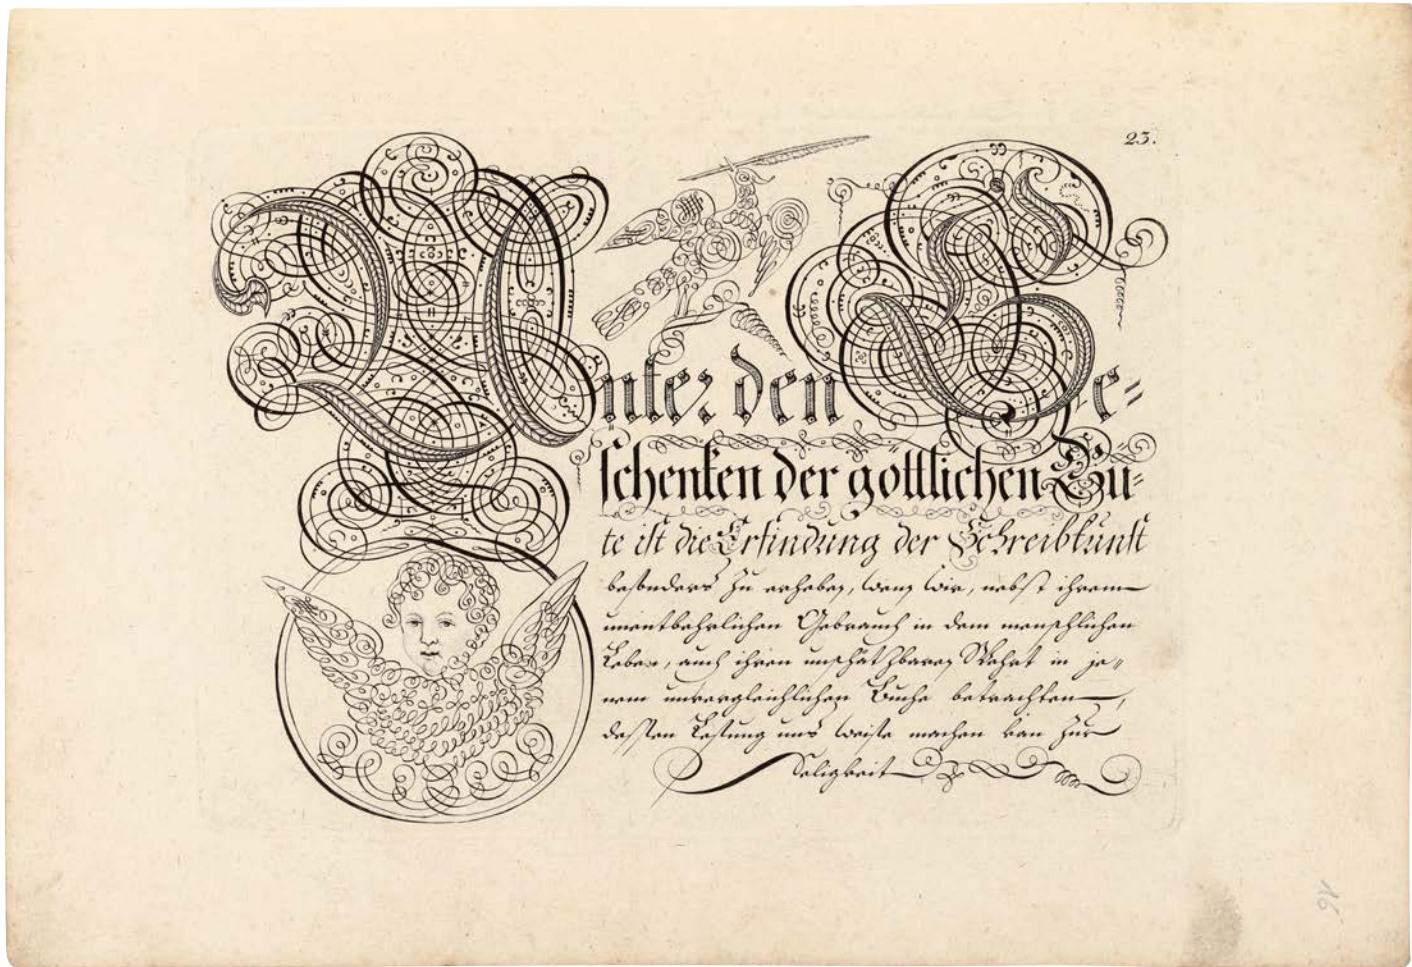 23.
Unter den Ge=
schenken der göttlichen Gü=
te ist die Erfindung der Schreibkunst
besonders zu erheben, wenn wir, nebst ihrem
unentbehrlichen Gebrauch in dem menschlichen
Leben, auch ihren unschätzbaren Wehrt in je=
nem unvergleichlichen Buche betrachten,
dessen Lesung uns weise machen kan zur
Seligkeit